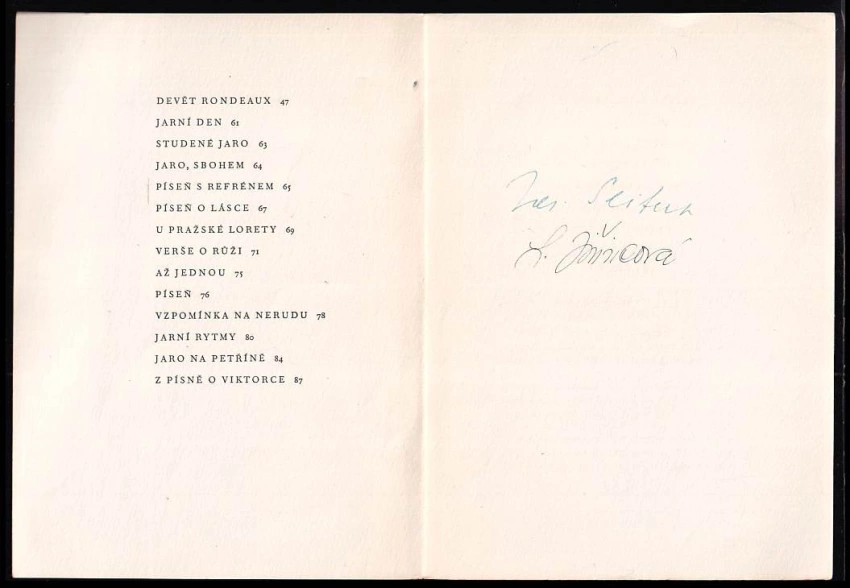 DEVĚT RONDEAUX 47
JARNÍ DEN 61
STUDENÉ JARO 63
JARO, SBOHEM 64
PÍSEŇ S REFRÉNEM 65
PÍSEŇ O LÁSCE 67
U PRAŽSKÉ LORETY 69
VERŠE O RŮŽI 71
AŽ JEDNOU 75
PÍSEŇ 76
VZPOMÍNKA NA NERUDU 78
JARNÍ RYTMY 80
JARO NA PETŘÍNĚ 84
Z PÍSNĚ O VIKTORCE 87
Jar. Seifert
L. Jiřincová